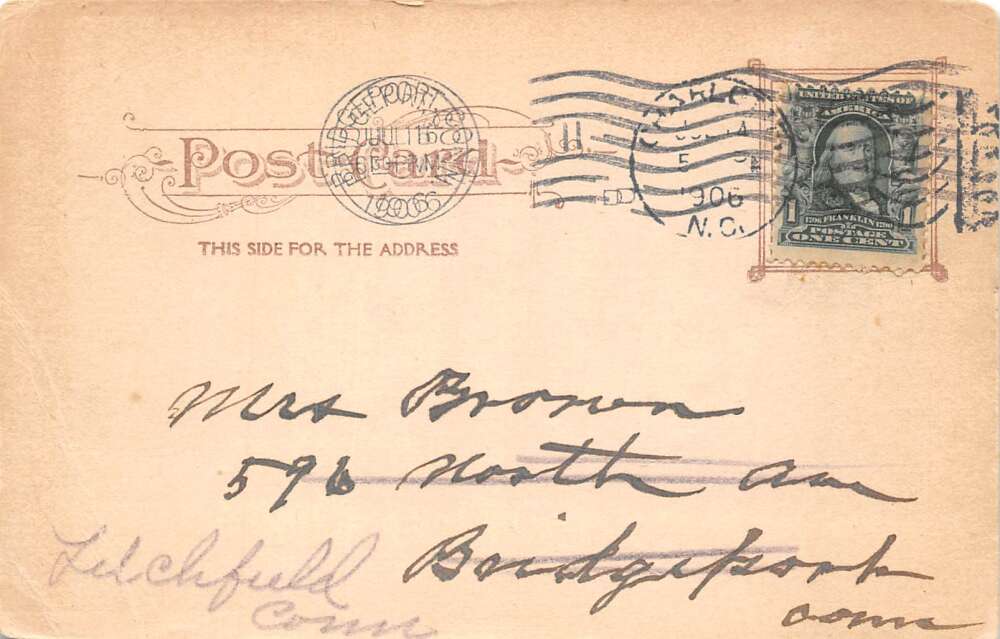 Post Card
THIS SIDE FOR THE ADDRESS
BRIDGEPORT
JUL 16
1906
14
5
1906
N.C.
UNITED STATES OF
AMERICA
1 1706 FRANKLIN 1790 1
POSTAGE
ONE CENT
Mrs Brown
596 North Ave
Bridgeport
Conn
Litchfield
Conn